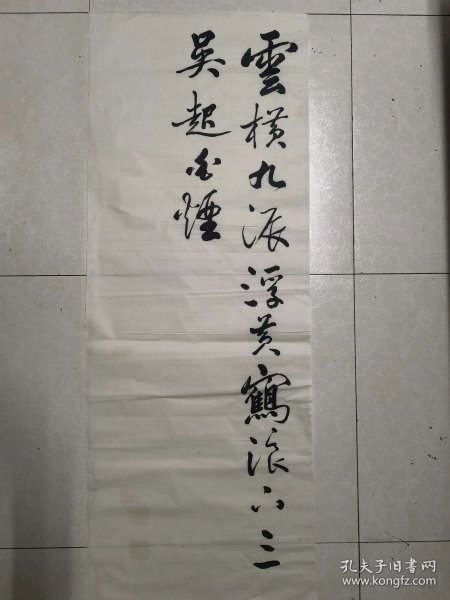 雲橫九派浮黃鶴浪下三
吳起白煙
孔夫子旧书网
www.kongfz.com